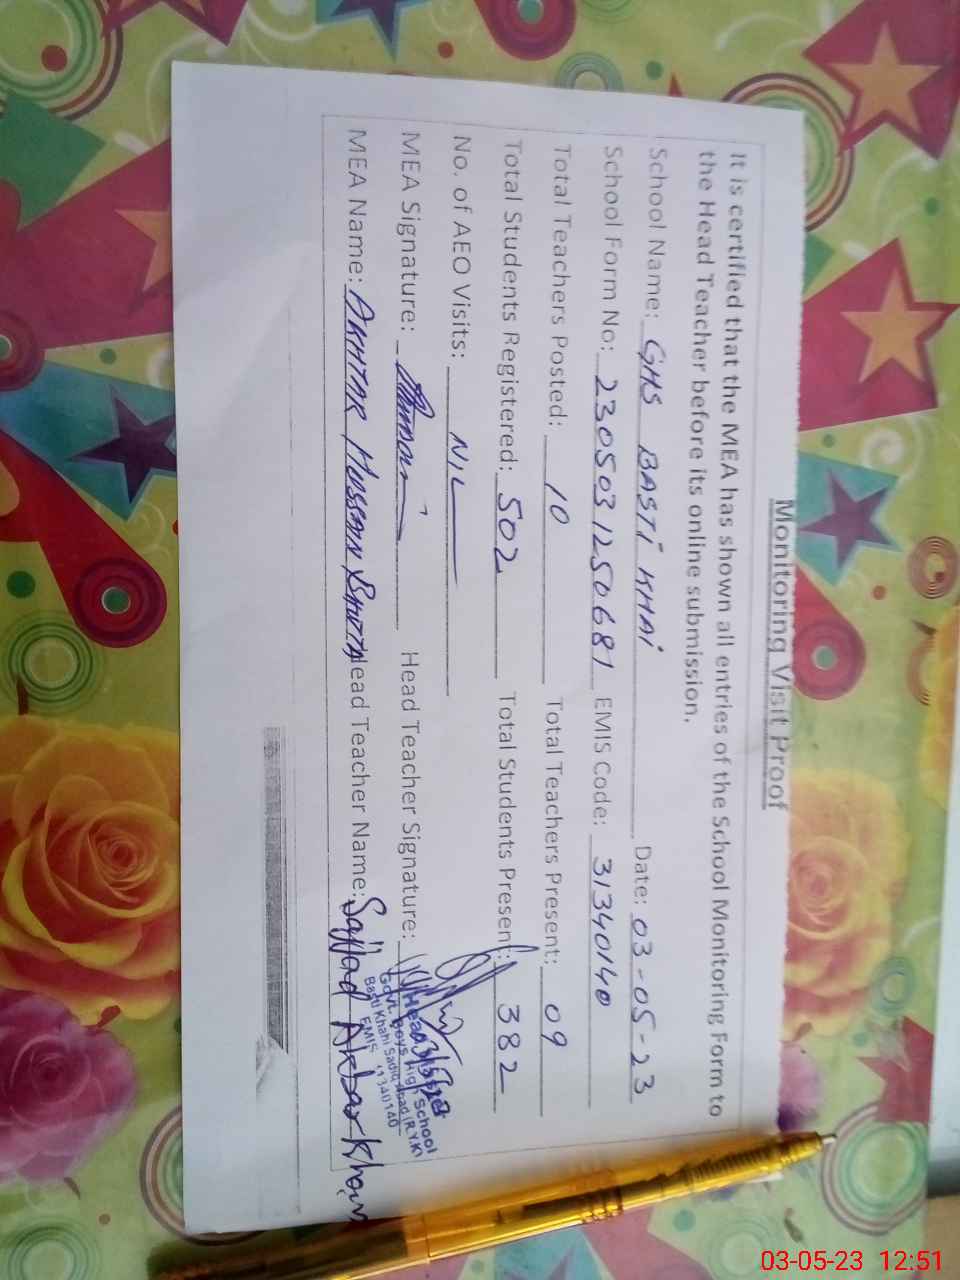 Monitoring Visit Proof
It is certified that the MEA has shown all entries of the School Monitoring Form to
the Head Teacher before its online submission.
School Name: GHS BASTI KHAI Date: 03-05-23
School Form No: 2305031250681 EMIS Code: 31340140
Total Teachers Posted: 10 Total Teachers Present: 09
Total Students Registered: 502 Total Students Present: 382
No. of AEO Visits: NIL
MEA Signature: Head Teacher Signature:
Head
Govt. Boys High School
Basti Khahi Sadiq Abad (R.Y.K)
EMIS 31340140
MEA Name: AKHTAR HUSSAIN BHUTTA Head Teacher Name: Sajjad Akbar Khan
03-05-23 12:51